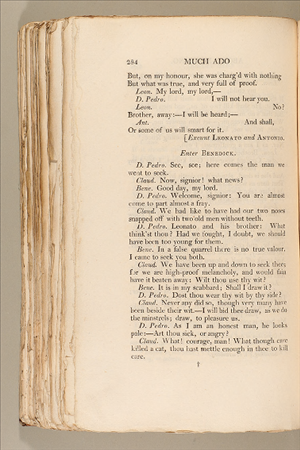 284 MUCH ADO
But, on my honour, she was charg'd with nothing
But what was true, and very full of proof.
Leon. My lord, my lord,—
D. Pedro. I will not hear you.
Leon. No?
Brother, away:—I will be heard;—
Ant. And shall,
Or some of us will smart for it.
[Exeunt LEONATO and ANTONIO.
Enter BENEDICK.
D. Pedro. See, see; here comes the man we
went to seek.
Claud. Now, signior! what news?
Bene. Good day, my lord.
D. Pedro. Welcome, signior: You are almost
come to part almost a fray.
Claud. We had like to have had our two noses
snapped off with two old men without teeth.
D. Pedro. Leonato and his brother: What
think'st thou? Had we fought, I doubt, we should
have been too young for them.
Bene. In a false quarrel there is no true valour.
I came to seek you both.
Claud. We have been up and down to seek thee;
for we are high-proof melancholy, and would fain
have it beaten away: Wilt thou use thy wit?
Bene. It is in my scabbard; Shall I draw it?
D. Pedro. Dost thou wear thy wit by thy side?
Claud. Never any did so, though very many have
been beside their wit.—I will bid thee draw, as we do
the minstrels; draw, to pleasure us.
D. Pedro. As I am an honest man, he looks
pale:—Art thou sick, or angry?
Claud. What! courage, man! What though care
killed a cat, thou hast mettle enough in thee to kill
care.